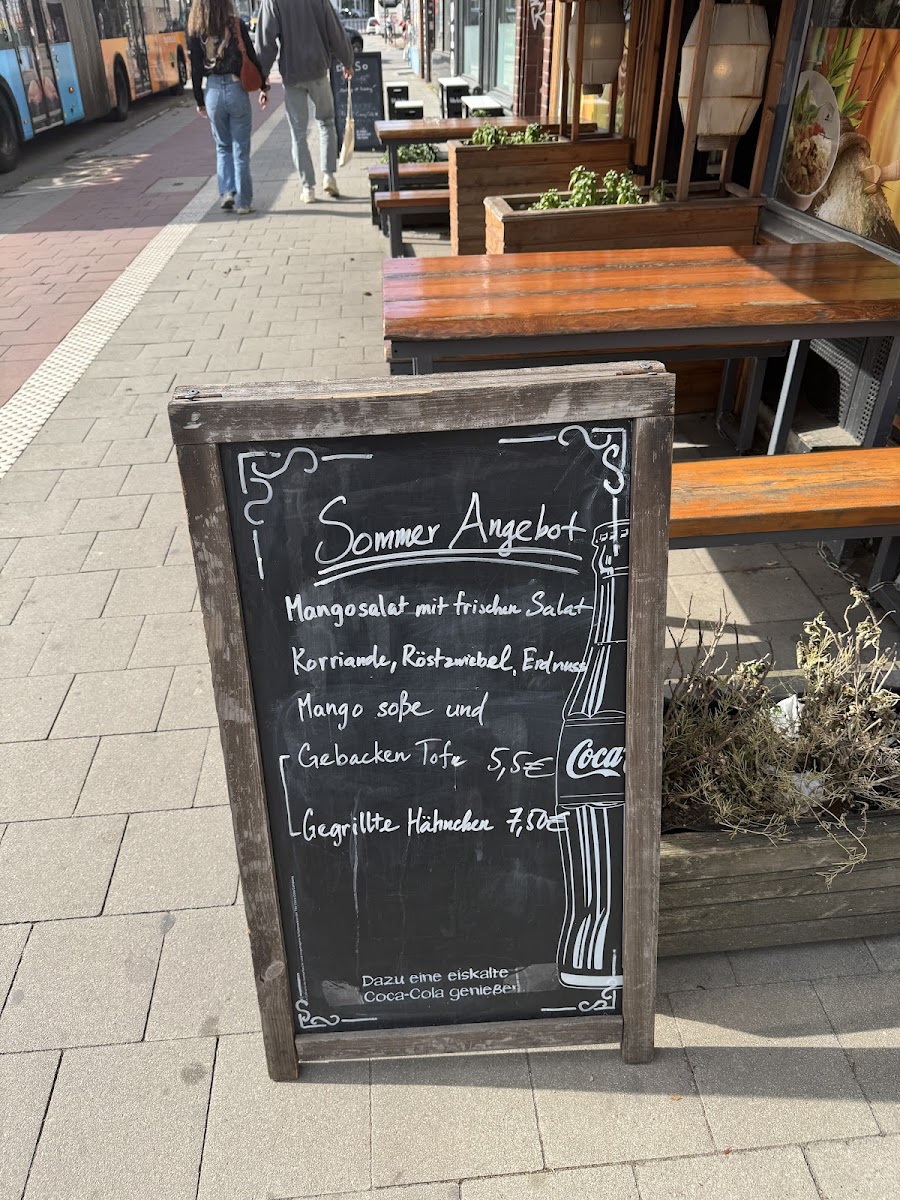 Sommer Angebot
Mangosalat mit frischen Salat
Korriande, Röstzwiebel, Erdnuss
Mango soße und
Gebacken Tofu 5,5€
Gegrillte Hähnchen 7,50€
Coca
Dazu eine eiskalte
Coca-Cola genießen